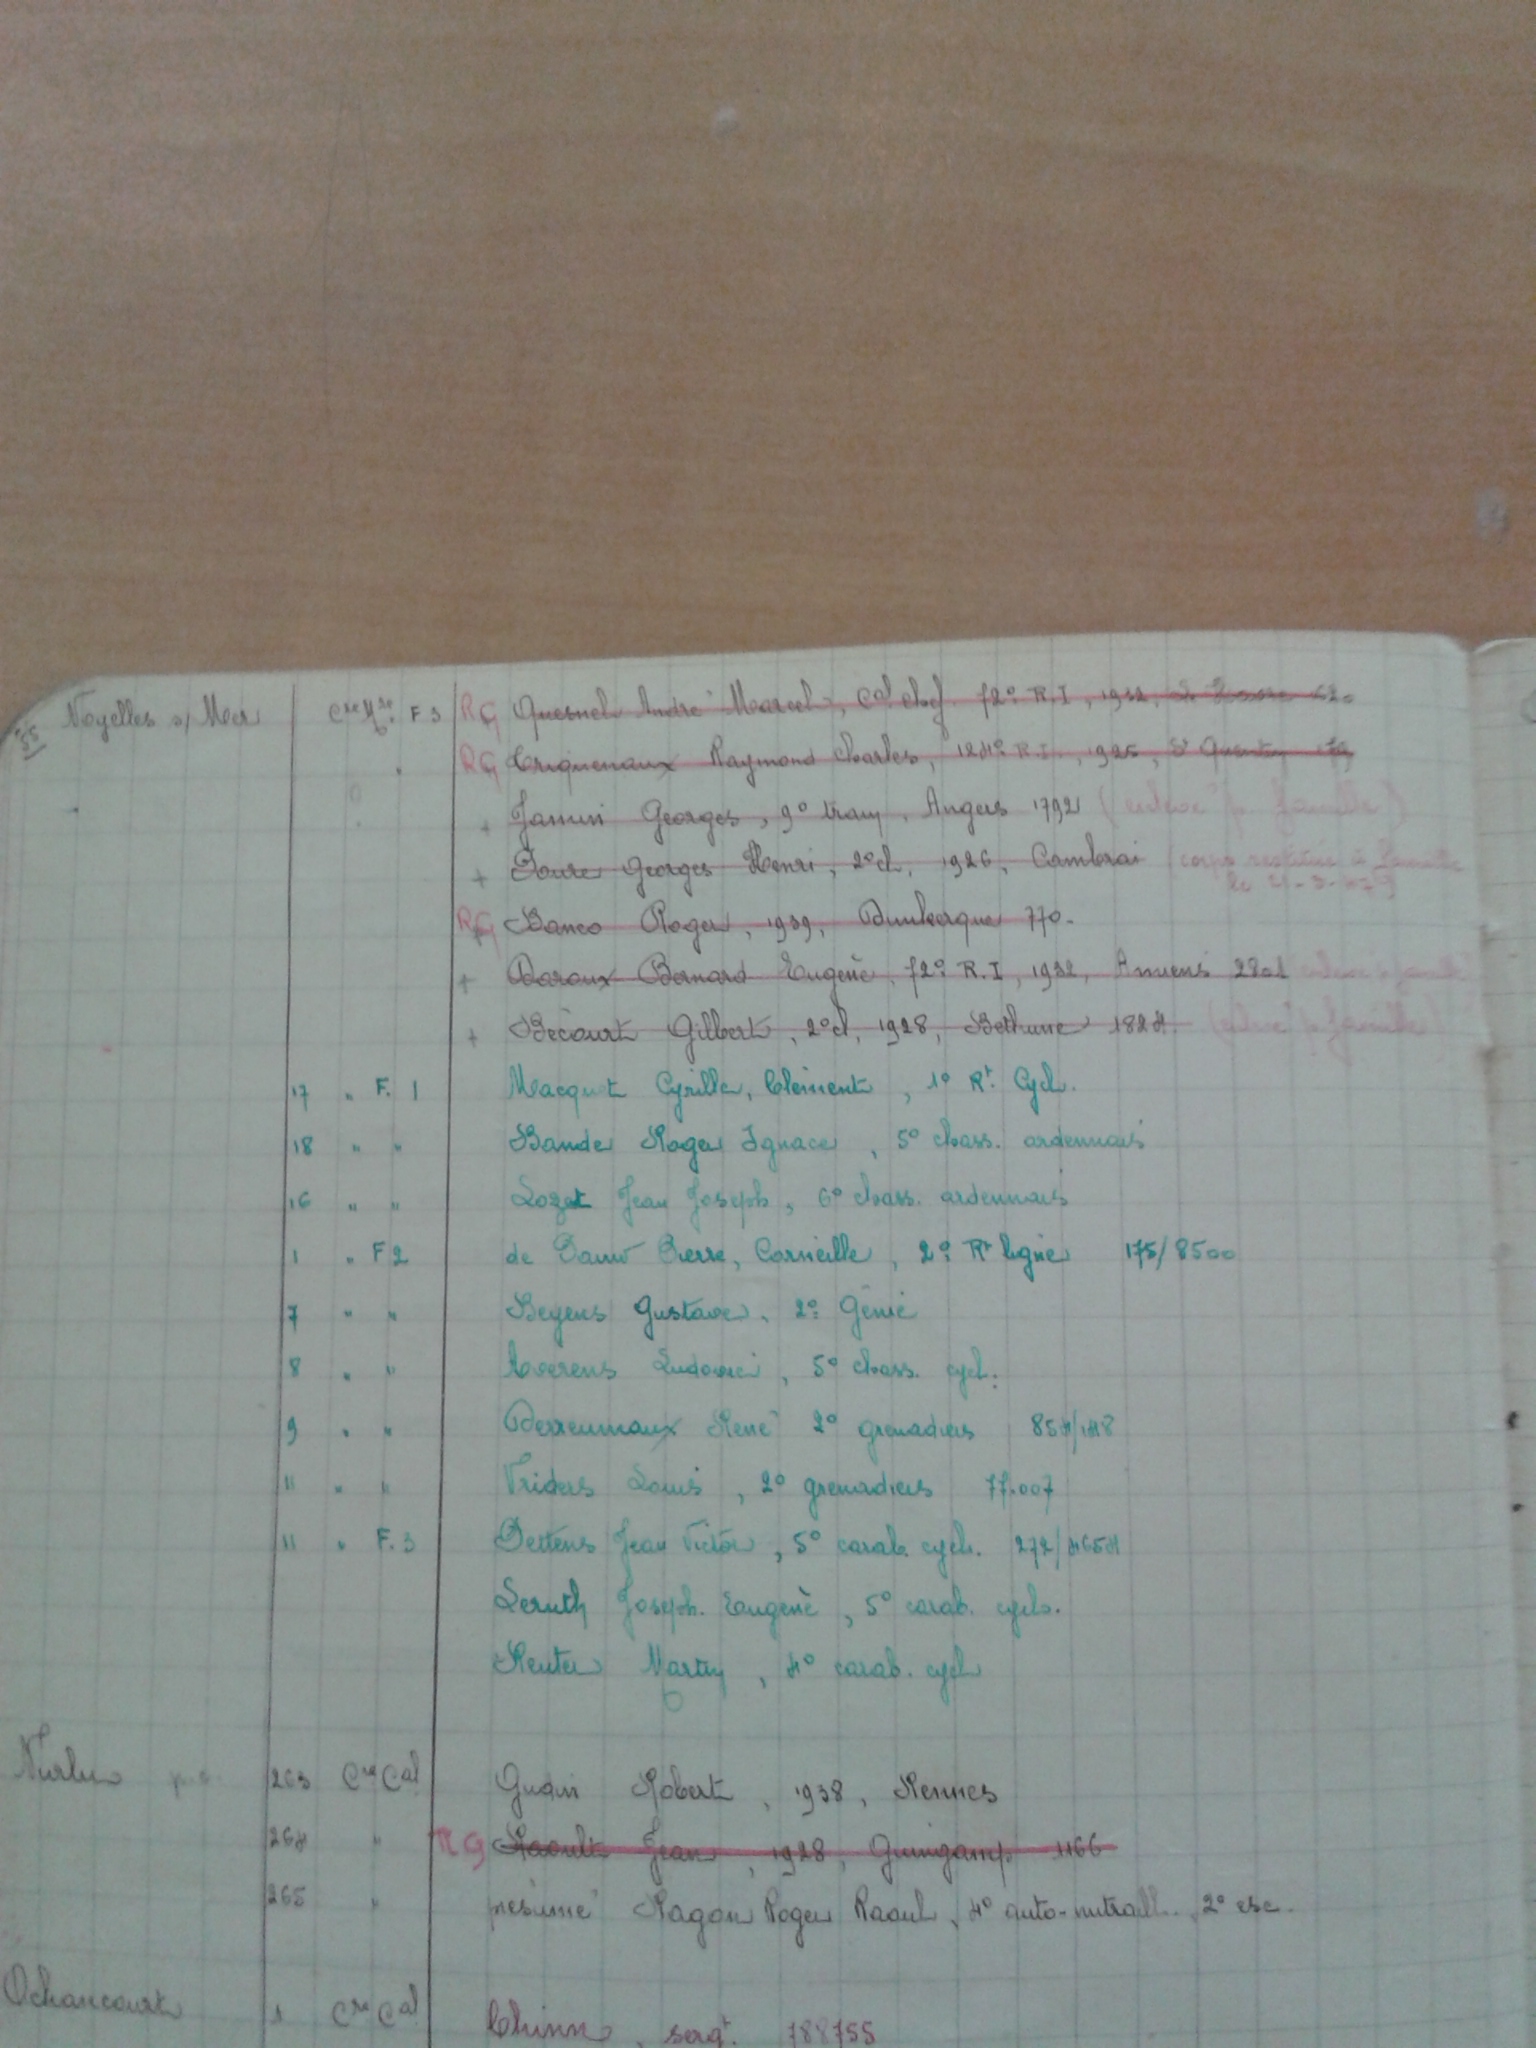 55 Noyelles s/ Mer Cre Mre F 3 RG Quesnel André Marcel, Cal chef 72e R.I, 1932, 620
RG Criquenaux Raymond Charles, 124e R.I., 1925, St Quentin 179
+ Jamin Georges, 9e train, Angers 1792 (enlevé p. famille)
+ Georges Henri, 2e cl, 1926, Cambrai (corps restitué à famille
le
RG Banco Roger, 1939, Dunkerque 770.
+ Daroux Bernard Eugène, 72e R.I, 1932, Amiens 2801
+ Bécourt Gilbert, 2e cl, 1928, Béthune 1824. (enlevé p. famille)
17 " F. 1 Macquet Cyrille, Clément, 1e Rt. Cycl.
18 " " Bande Roger Ignace, 5e chass. ardennais
16 " " Lozet Jean Joseph, 6e chass. ardennais
1 " F 2 de Pierre, Corneille, 2e Rt ligne 175/8500
7 " " Beyens Gustave, 2e Génie
8 " " Ludovic, 5e chass. cycl.
9 " " Derreumaux René 2e grenadiers 854/148
11 " " Vriders Louis, 2e grenadiers 77.007
11 " F. 3 Dettens Jean Victor, 5e carab. cycl. 272/4654
Leruth Joseph. Eugène, 5e carab. cycl.
Reuter Martin, 4e carab. cycl
Nurlu 263 Cre Cal Guain Robert, 1938, Rennes
264 " RG Raoult Jean, 1928, Guingamp 1166
265 " présumé Ragon Roger Raoul, 4e auto-mitraill., 2e esc.
Ochancourt 1 Cre Cal Chinn, sergt. 788755